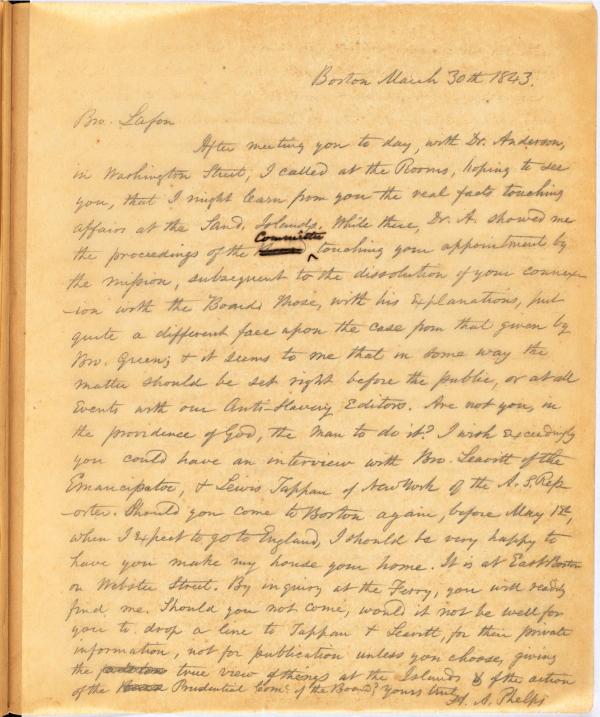 Boston March 30th 1843.
Bro. Lafon
After meeting you to day, with Dr. Anderson,
in Washington Street, I called at the Rooms, hoping to see
you, that I might learn from you the real facts touching
affairs at the Sand. Islands. While there, Dr. A. showed me
Committee
the proceedings of the ^ touching your appointment by
the mission, subsequent to the dissolution of your connex-
-ion with the Board. Those, with his explanations, put
quite a different face upon the case from that given by
Bro. Green; & it seems to me that in some way the
matter should be set right before the public, or at all
Events with our Anti-Slavery Editors. Are not you, in
the providence of God, the man to do it? I wish exceedingly
you could have an interview with Bro. Leavitt of the
Emancipator, & Lewis Tappan of New York of the A. S. Rep-
-orter. Should you come to Boston again, before May 1st,
when I expect to go to England, I should be very happy to
have you make my house your home. It is at East Boston
on Webster Street. By inquiry at the Ferry, you will readily
find me. Should you not come, would it not be well for
you to drop a line to Tappan & Leavitt, for their private
information, not for publication unless you choose, giving
the true view of things at the Islands & of the action
of the Prudential Com. of the Board? Yours truly
A. A. Phelps